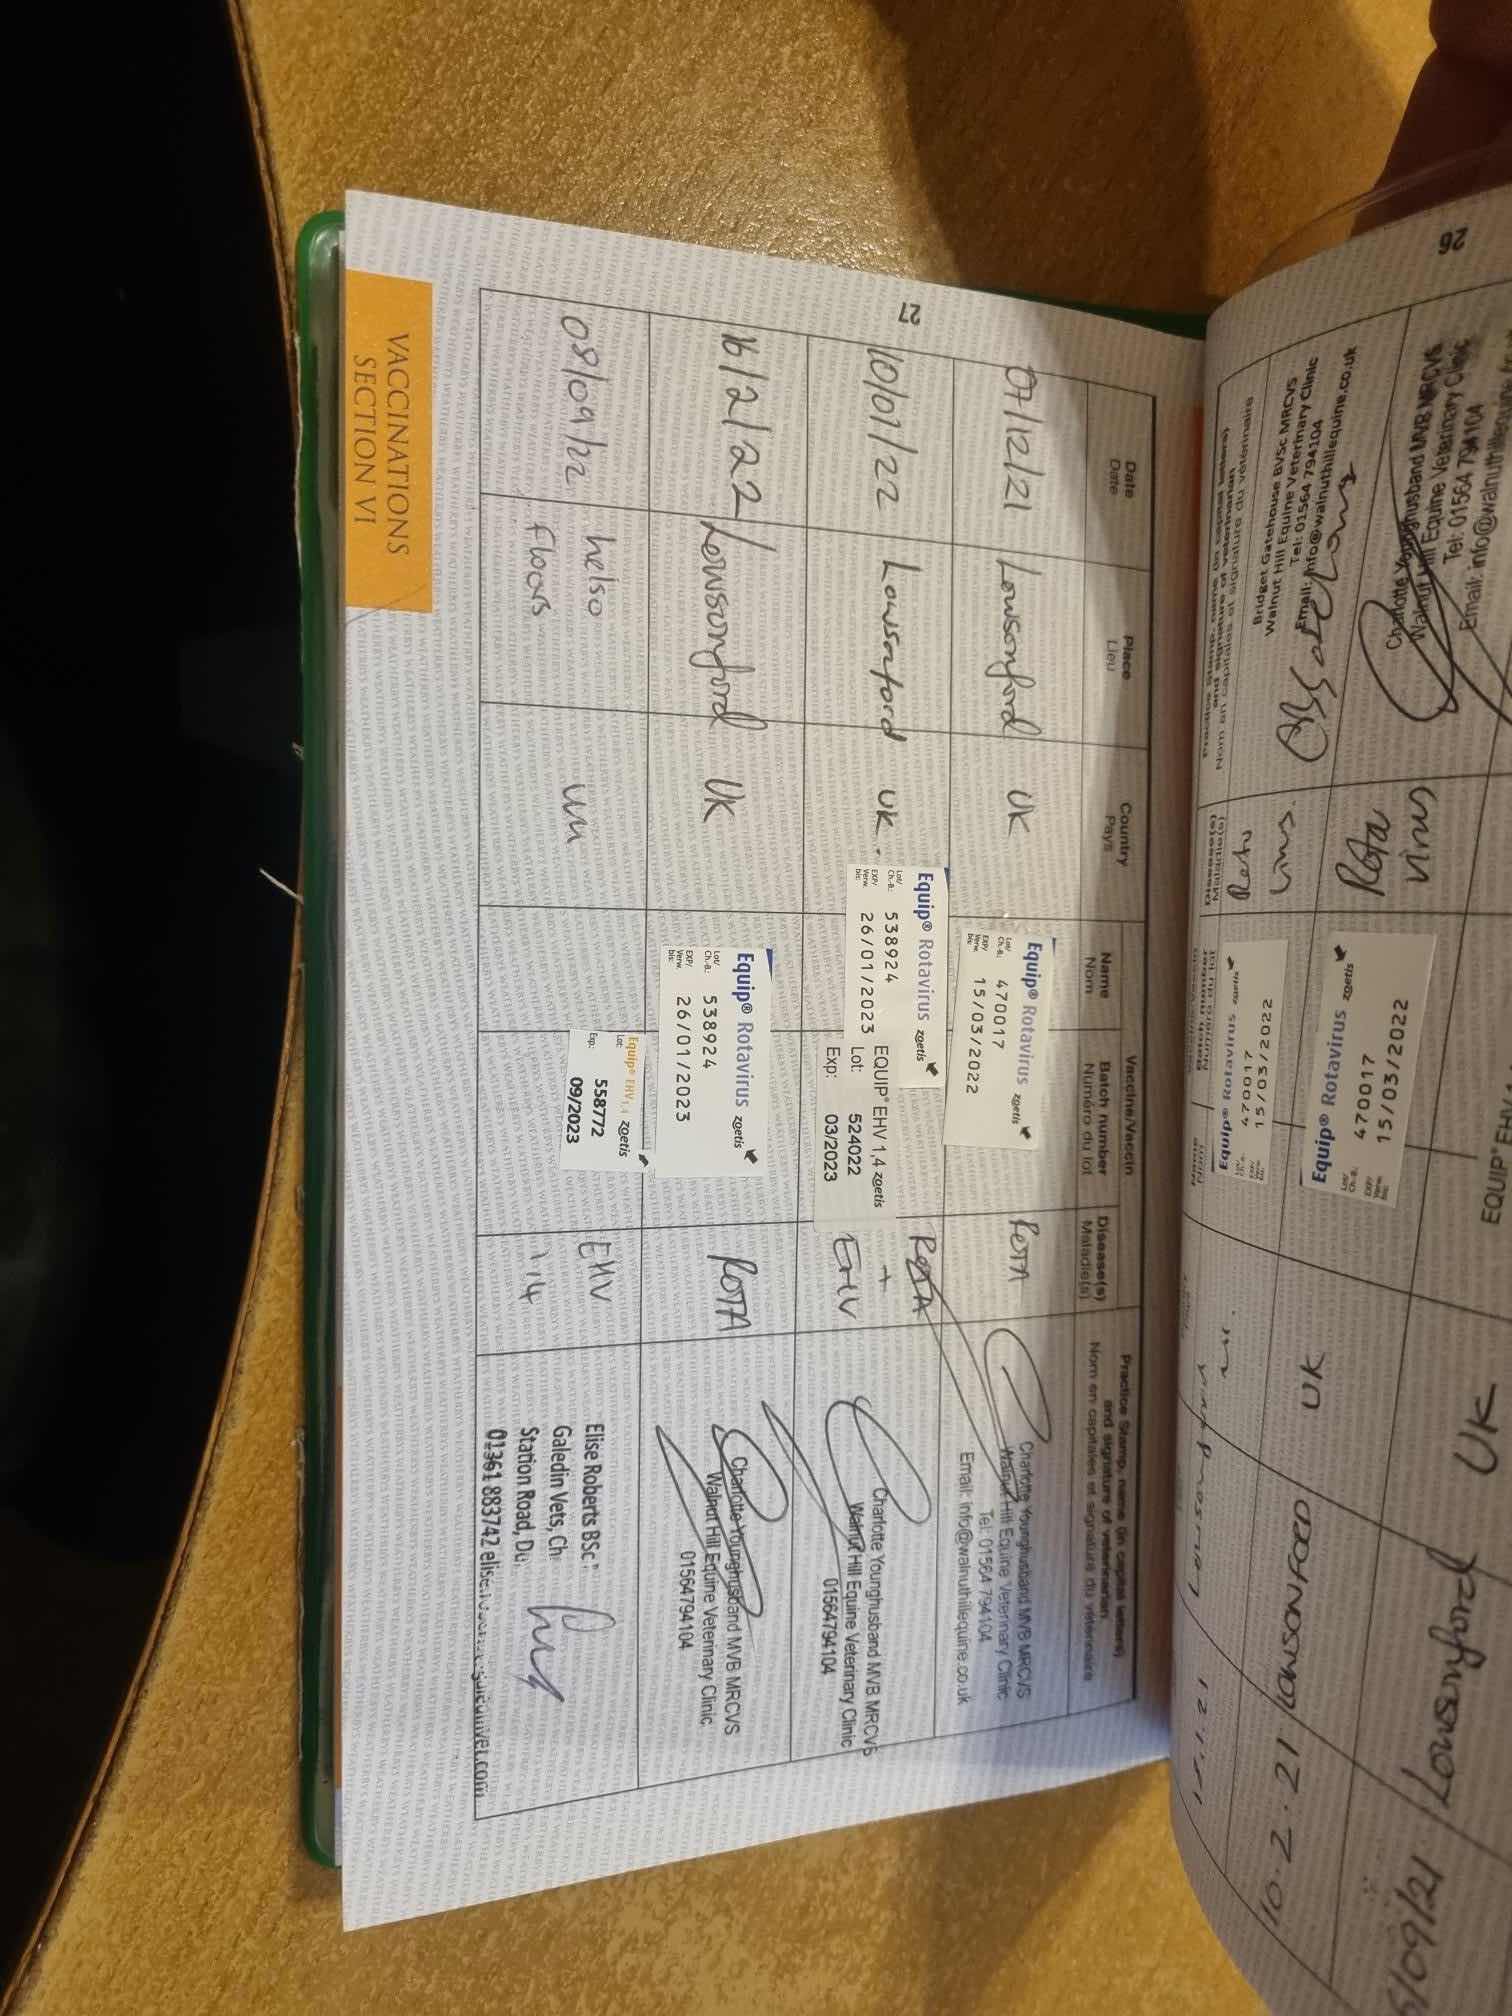 27
Date
Date
Place
Lieu
Country
Pays
Vaccine/Vaccin
Name
Nom
Batch number
Numéro du lot
Disease(s)
Maladie(s)
Practice Stamp, name (in capital letters)
and signature of veterinarian
Nom en capitales et signature du vétérinaire
07/12/21 Lowsonford UK
Equip® Rotavirus zoetis
Lot/
Ch.-B.: 470017
EXP/
Verw.
bis: 15/03/2022
ROTA
Charlotte Younghusband MVB MRCVS
Walnut Hill Equine Veterinary Clinic
Tel: 01564 794104
Email: info@walnuthillequine.co.uk
10/01/22 Lowsonford UK.
Equip® Rotavirus zoetis
Lot/
Ch.-B.: 538924
EXP/
Verw.
bis: 26/01/2023
EQUIP® EHV 1,4 zoetis
Lot: 524022
Exp: 03/2023
ROTA
+
EHV
Charlotte Younghusband MVB MRCVS
Walnut Hill Equine Veterinary Clinic
01564794104
16/2/22 Lowsonford UK
Equip® Rotavirus zoetis
Lot/
Ch.-B.: 538924
EXP/
Verw.
bis: 26/01/2023
ROTA
Charlotte Younghusband MVB MRCVS
Walnut Hill Equine Veterinary Clinic
01564794104
08/09/22
Floors
Equip® EHV 1,4 zoetis
Lot: 558772
Exp: 09/2023
EHV
1,4
Elise Roberts BSc
Galedin Vets, Ch
Station Road, Du
01361 883742
VACCINATIONS
SECTION VI
26
Lowsonford UK
EQUIP® EHV
Charlotte Younghusband MVB MRCVS
Walnut Hill Equine Veterinary Clinic
Tel: 01564 794104
Email: info@walnuthillequine
10.2.21 LOWSONFORD UK
Equip® Rotavirus zoetis
Lot/
Ch.-B.: 470017
EXP/
Verw.
bis: 15/03/2022
Rota
virus
Bridget Gatehouse BVSc MRCVS
Walnut Hill Equine Veterinary Clinic
Tel: 01564 794104
Email: info@walnuthillequine.co.uk
Equip® Rotavirus zoetis
470017
15/03/2022